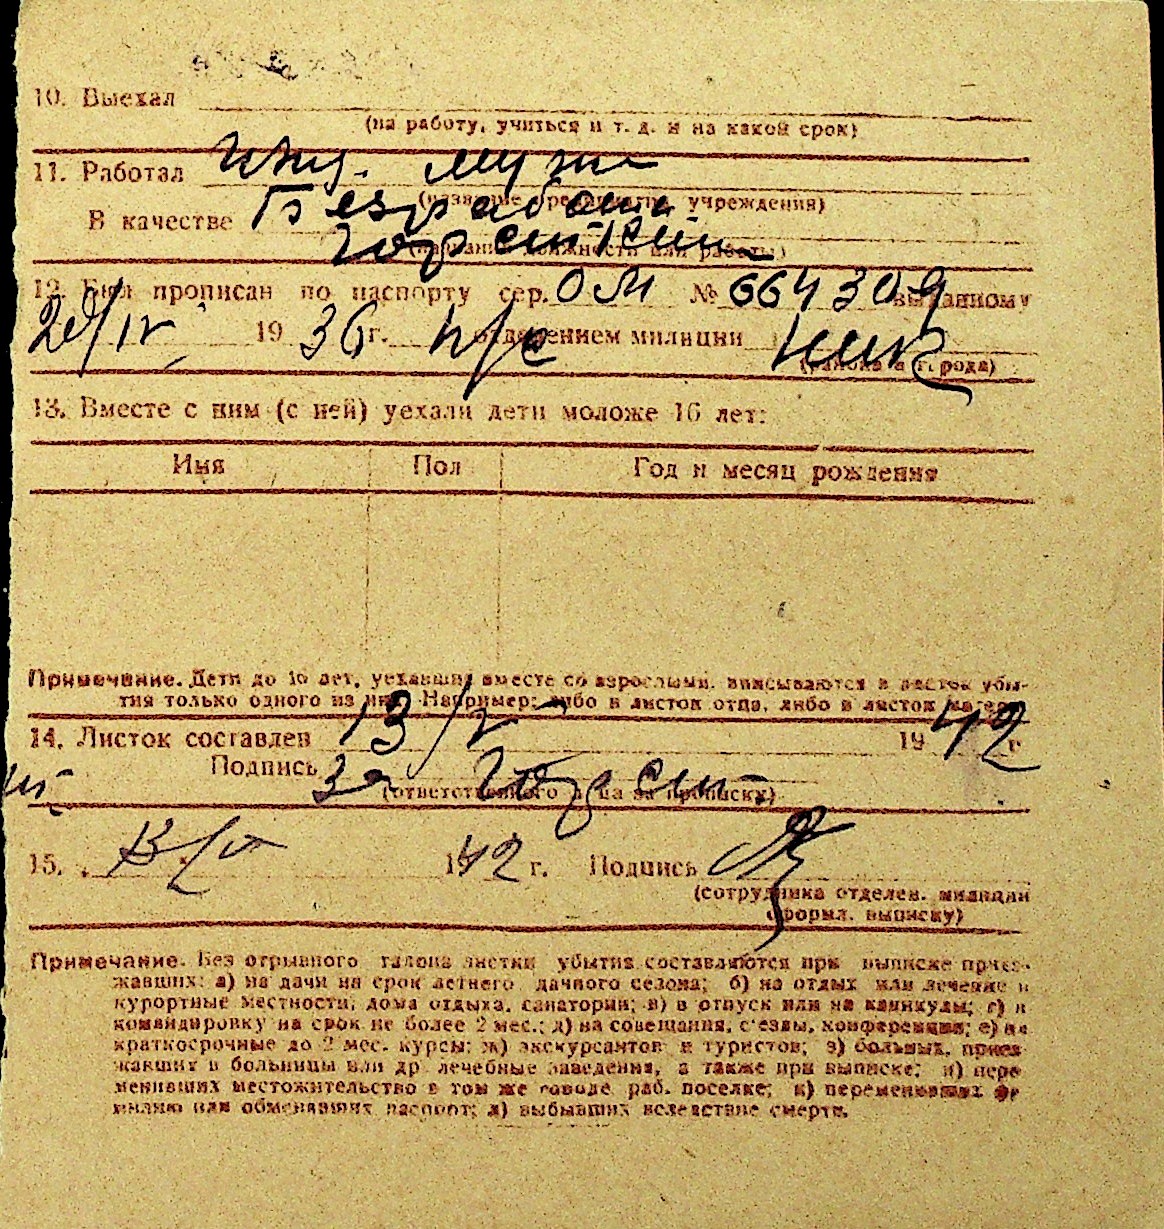 10. Выехал
(на работу, учиться и т. д. и на какой срок)
11. Работал ижд. мужа
(название предприятия, учреждения)
В качестве
(название должности или работы)
12. Был прописан по паспорту сер. ОМ № 664309 выданному
19 36 г. отделением милиции
(района и города)
13. Вместе с ним (с ней) уехали дети моложе 16 лет:
Имя Пол Год и месяц рождения
Примечание. Дети до 16 лет, уехавшие вместе со взрослыми, вписываются в листок убы-
тия только одного из них. Например: либо в листок отца, либо в листок матери
14. Листок составлен 13/V 1942 г.
Подпись
(ответственного лица за прописку)
15. 1942 г. Подпись
(сотрудника отделен. милиции
оформл. выписку)
Примечание. Без отрывного талона листки убытия составляются при выписке приез-
жавших: а) на дачи на срок летнего дачного сезона; б) на отдых или лечение в
курортные местности, дома отдыха, санатории; в) в отпуск или на каникулы; г) в
командировку на срок не более 2 мес.; д) на совещания, с'езды, конференции; е) на
краткосрочные до 2 мес. курсы; ж) экскурсантов и туристов; з) больных, приез-
жавших в больницы или др. лечебные заведения, а также при выписке; и) пере
менивших местожительство в том же городе, раб. поселке; к) переменивших фа
милию или обменявших паспорт; л) выбывших вследствие смерти.